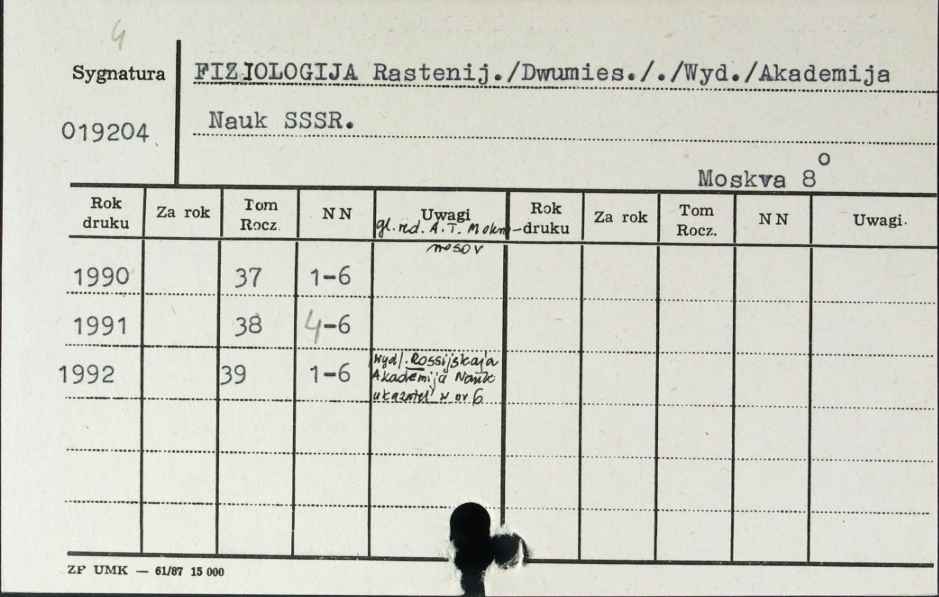 4
Sygnatura
FIZJOLOGIJA Rastenij./Dwumies././Wyd./Akademija
019204
Nauk SSSR.
Moskva 8 o
Rok druku Za rok Tom Rocz. NN Uwagi Rok druku Za rok Tom Rocz. NN Uwagi.
gl. red. A.T. Mokro-
nosov
1990 37 1-6
1991 38 4-6
1992 39 1-6
wyd. Rossijskaja
Akademija Nauk
ukazatel' w nr 6
ZP UMK — 61/87 15 000